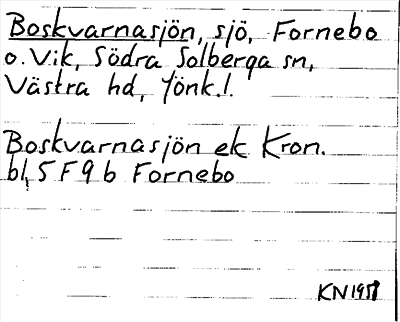 Boskvarnasjön, sjö, Fornebo
o. Vik, Södra Solberga sn,
Västra hd, Jönk.l.
Boskvarnasjön ek Kron.
bl, 5 F 9 b Fornebo
KN